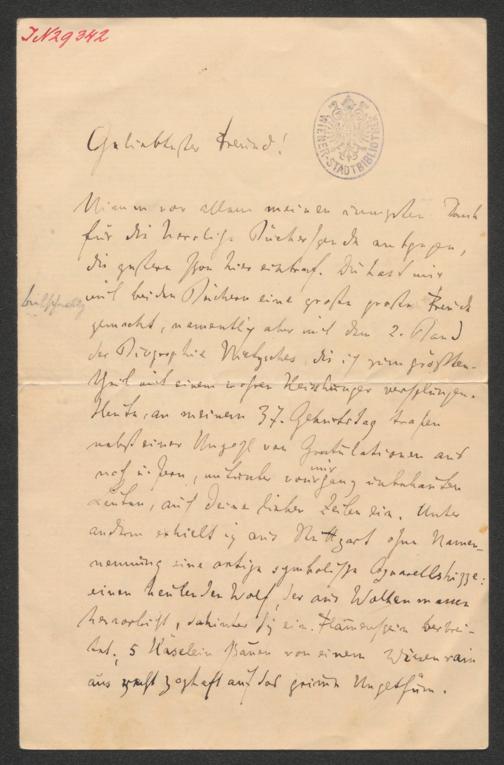 IN 29 342
WIENER-STADTBIBLIOTHEK
Geliebtester Freund!
Nimm vor allem meinen innigsten Dank
für die herrliche Bücherspende entgegen,
die gestern schon hier eintraf. Du hast mir
mit beiden Büchern eine große große Freude
gemacht, namentlich aber mit dem 2. Band
der Biographie Nietzsches, die ich zum größten-
theil mit einem wahren Heißhunger verschlungen.
Heute, an meinem 37. Geburtstag trafen
nebst einer Unzahl von Gratulationen aus
nah u. fern, mitunter von mir gänzlich unbekannten
Leuten, auch deine lieben Zeilen ein. Unter
andrem erhielt ich aus Stuttgart ohne Namen-
nennung eine artige symbolische Aquarellskizze:
einen heulenden Wolf, der aus Wolkenmassen
hervorbricht, dahinter sich ein Flammenschein verbrei-
tet; 5 Häselein schauen von einem Wiesenrain
aus zaghaft auf das grimme Ungethüm.